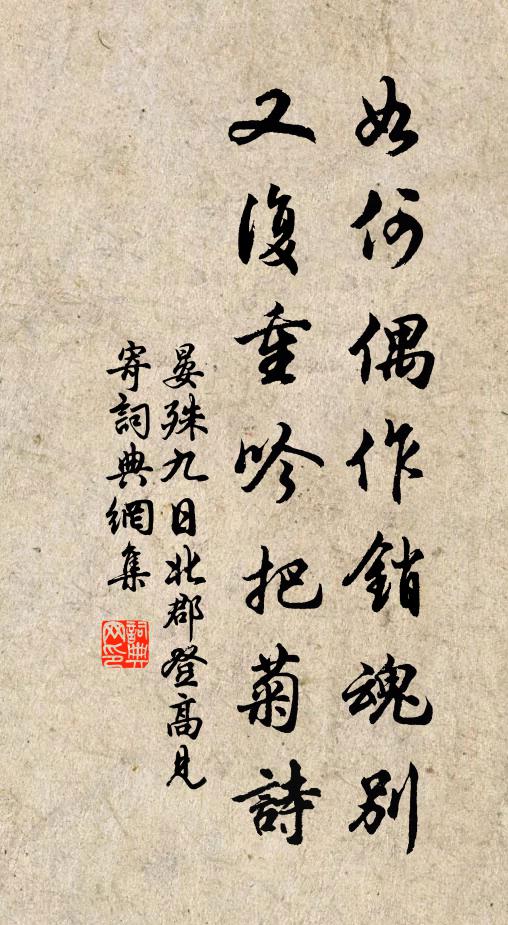 如何偶作銷魂別
又復重吟把菊詩
晏殊九日北郡登高見
寄詞典網集
詞典
网印